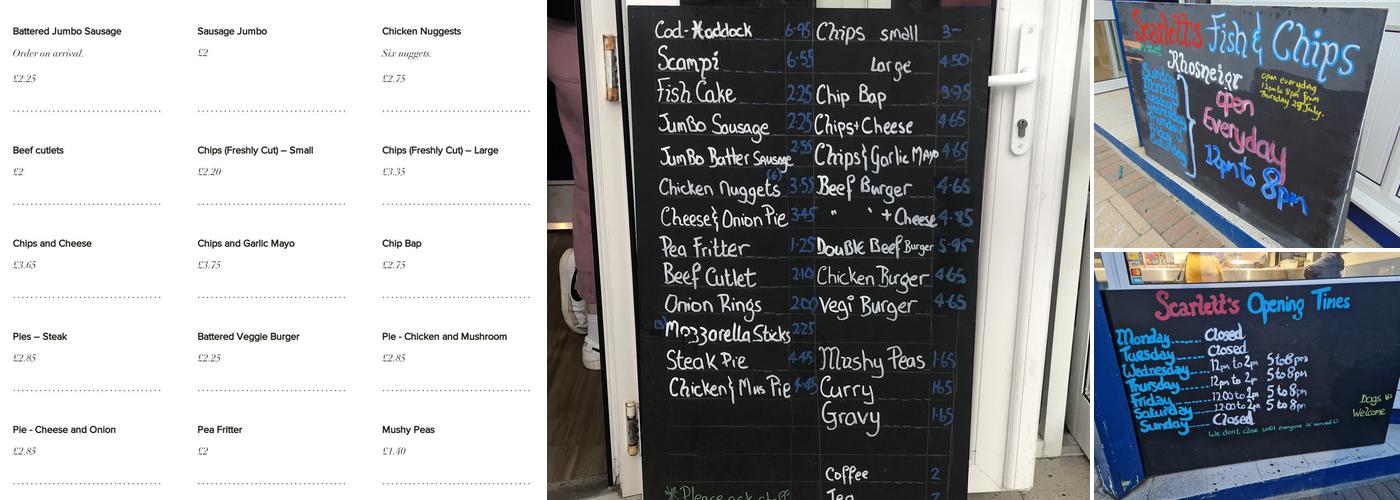 Battered Jumbo Sausage
Order on arrival.
£2.25
Sausage Jumbo
£2
Chicken Nuggets
Six nuggets.
£2.75
Beef cutlets
£2
Chips (Freshly Cut) – Small
£2.20
Chips (Freshly Cut) – Large
£3.35
Chips and Cheese
£3.65
Chips and Garlic Mayo
£3.75
Chip Bap
£2.75
Pies – Steak
£2.85
Battered Veggie Burger
£2.25
Pie - Chicken and Mushroom
£2.85
Pie - Cheese and Onion
£2.85
Pea Fritter
£2
Mushy Peas
£1.40
Cod-Haddock 6·95
Scampi 6·55
Fish Cake 2·25
Jumbo Sausage 2·25
Jumbo Batter Sausage 2·55
Chicken Nuggets (6) 3·55
Cheese & Onion Pie 3·45
Pea Fritter 1·25
Beef Cutlet 2·10
Onion Rings 2·00
Mozzorella Sticks 2·25
Steak Pie 4·45
Chicken & Mus Pie 4·45
Chips small 3-
Large 4·50
Chip Bap 3·75
Chips+Cheese 4·65
Chips & Garlic Mayo 4·65
Beef Burger 4·65
" " + Cheese 4·85
Double Beef Burger 5·95
Chicken Burger 4·65
Vegi Burger 4·65
Mushy Peas 1·65
Curry 1·65
Gravy 1·65
Coffee 2
Tea
*Please ask staff
Scarlett's Fish & Chips
Rhosneigr
Sunday
Monday
Tuesday
Wednesday
Thursday
Friday
Saturday
open everyday
12pm to 8pm from
Thursday 29th July.
Open
Everyday
12pm to 8pm
Scarlett's Opening Times
Monday Closed
Tuesday Closed
Wednesday 12pm to 2pm 5 to 8pm
Thursday 12pm to 2pm 5 to 8pm
Friday 12:00 to 2pm 5 to 8pm
Saturday 12:00 to 2pm 5 to 8pm
Sunday Closed
We dont close until everyone is served
Dogs
Welcome